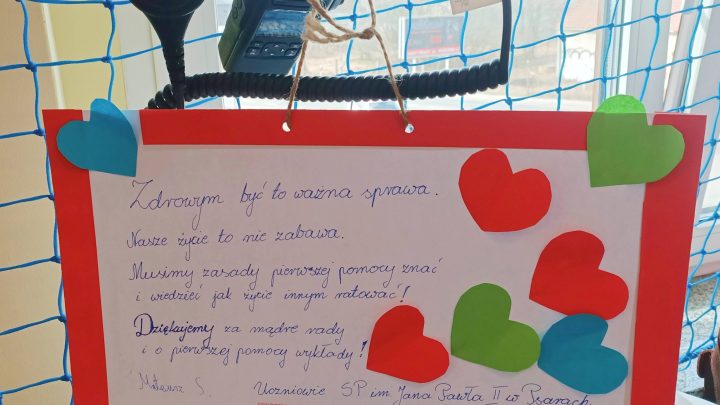 Zdrowym być to ważna sprawa.
Nasze życie to nie zabawa.
Musimy zasady pierwszej pomocy znać
i wiedzieć jak życie innym ratować!
Dziękujemy za mądre rady
i o pierwszej pomocy wykłady!
Mateusz S.
Uczniowie SP im Jana Pawła II w Psarach